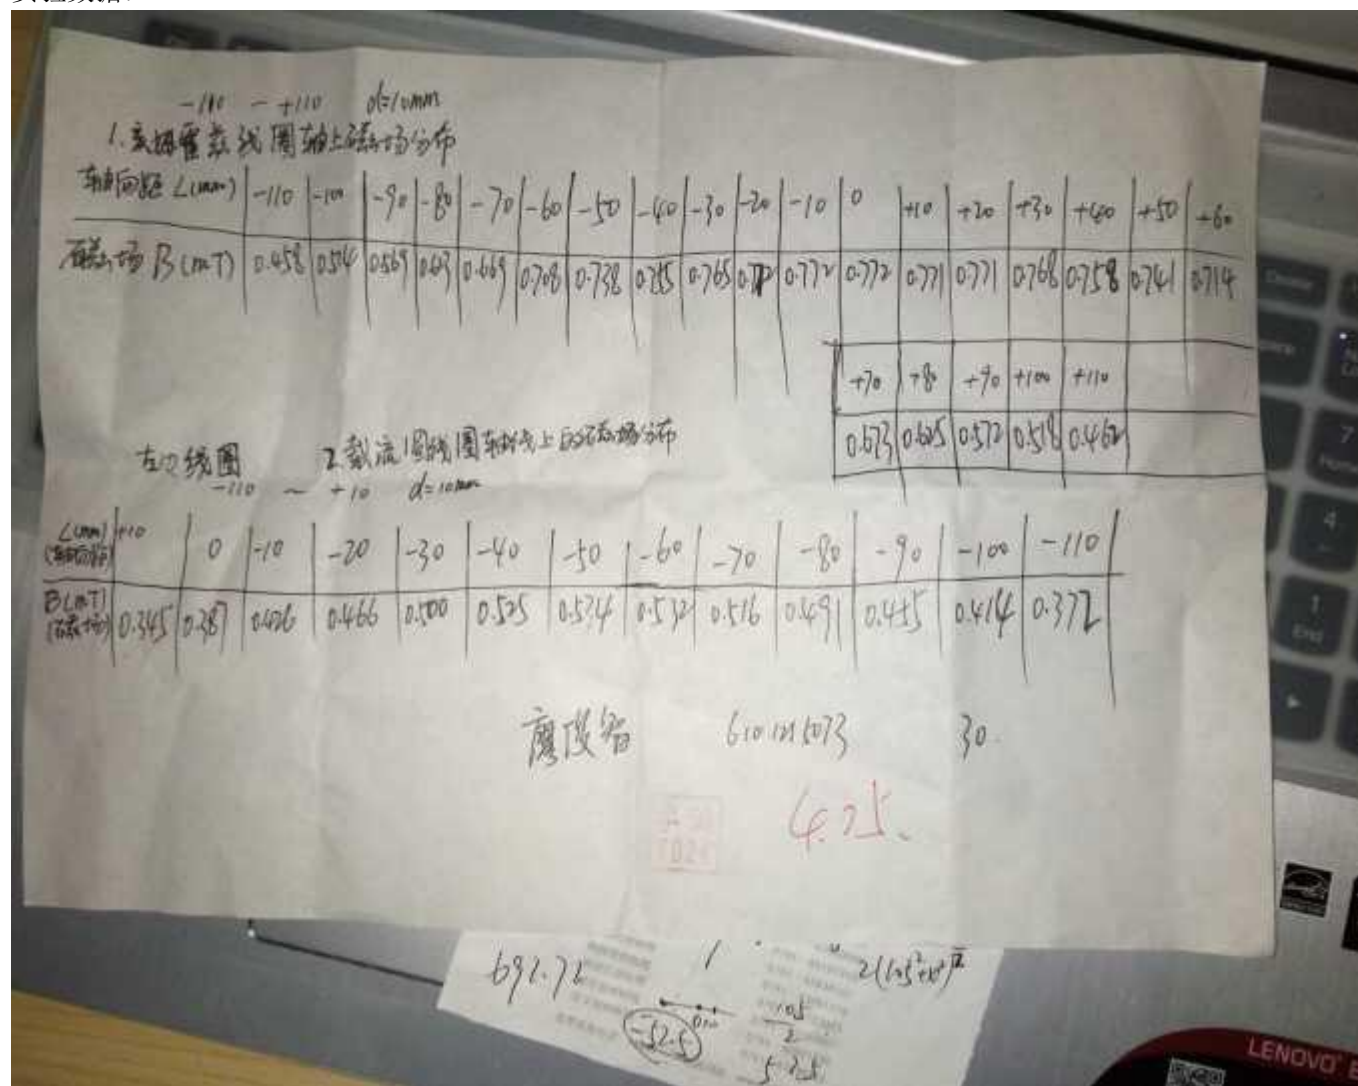 -110 ~ +110 d=10mm
1.亥姆霍兹线圈轴上磁场分布
轴向距L(mm) -110 -100 -90 -80 -70 -60 -50 -40 -30 -20 -10 0 +10 +20 +30 +40 +50 +60
磁场B(mT) 0.458 0.514 0.569 0.669 0.708 0.738 0.755 0.765 0.772 0.772 0.771 0.771 0.768 0.758 0.741 0.714
+70 +80 +90 +100 +110
0.673 0.625 0.572 0.518 0.462
左边线圈 2.载流圆线圈轴线上的磁场分布
-110 ~ +10 d=10mm
L(mm) +10 0 -10 -20 -30 -40 -50 -60 -70 -80 -90 -100 -110
(轴向距)
B(mT) 0.345 0.387 0.426 0.466 0.500 0.525 0.534 0.532 0.516 0.491 0.455 0.414 0.372
(磁场)
30.
4.25.
692.72
105
2
-52.5
52.5
Home
4
1
End
LENOVO